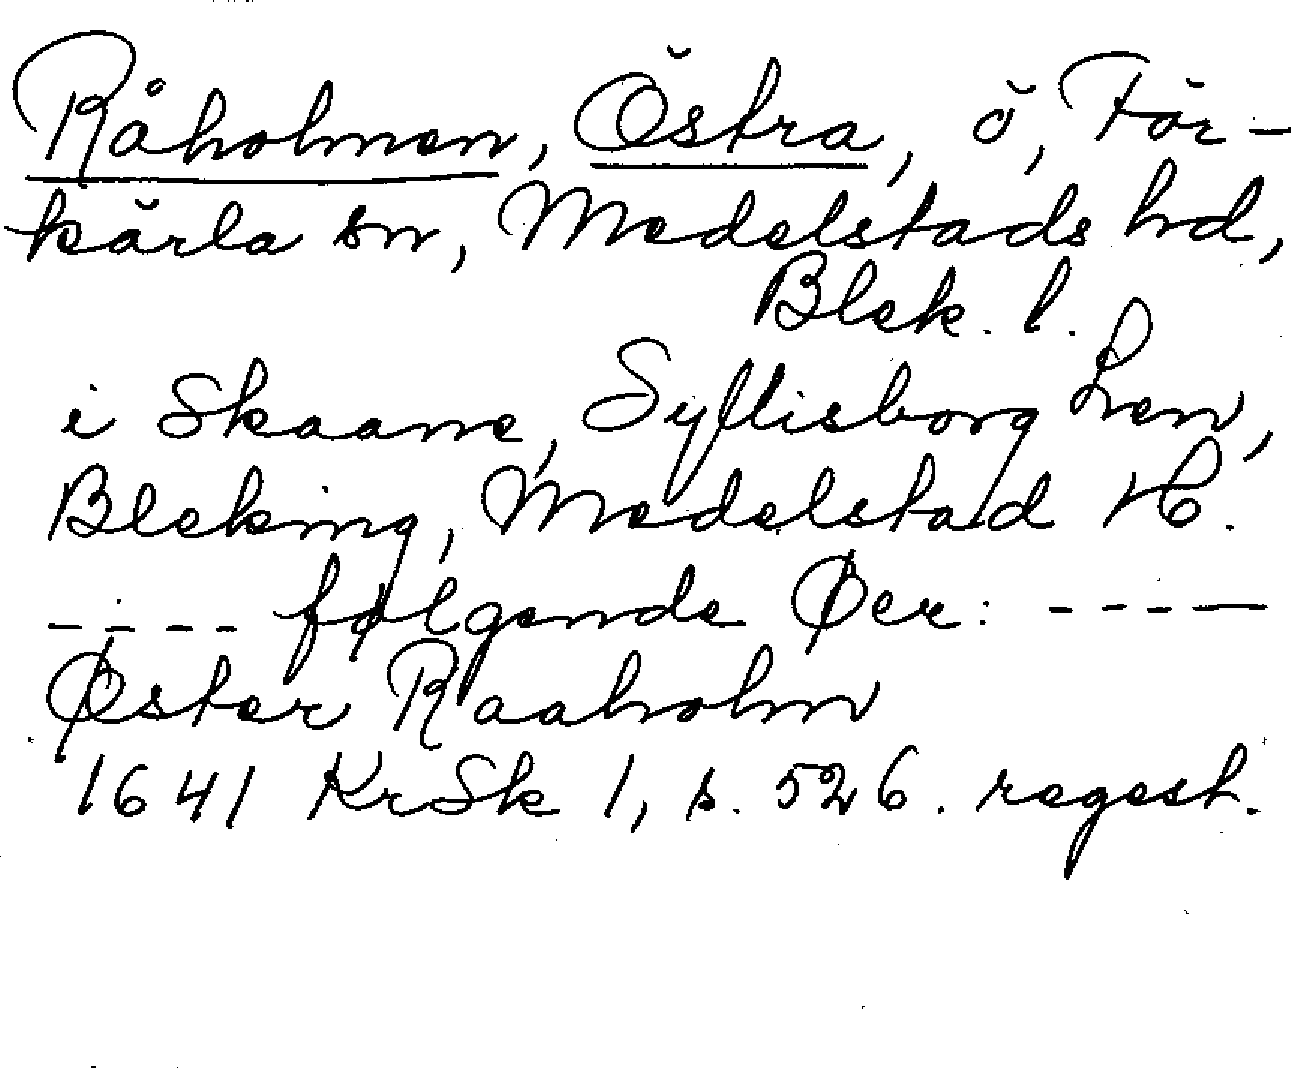 Råholmen, Östra, ö, För-
kärla sn, Medelstads hd,
Blek. l.
i Skaane, Syllisborg Len,
Bleking, Medelstad H.
---- følgende Øer: ----
Øster Raaholm
1641 KrSk 1, s. 526. regest.